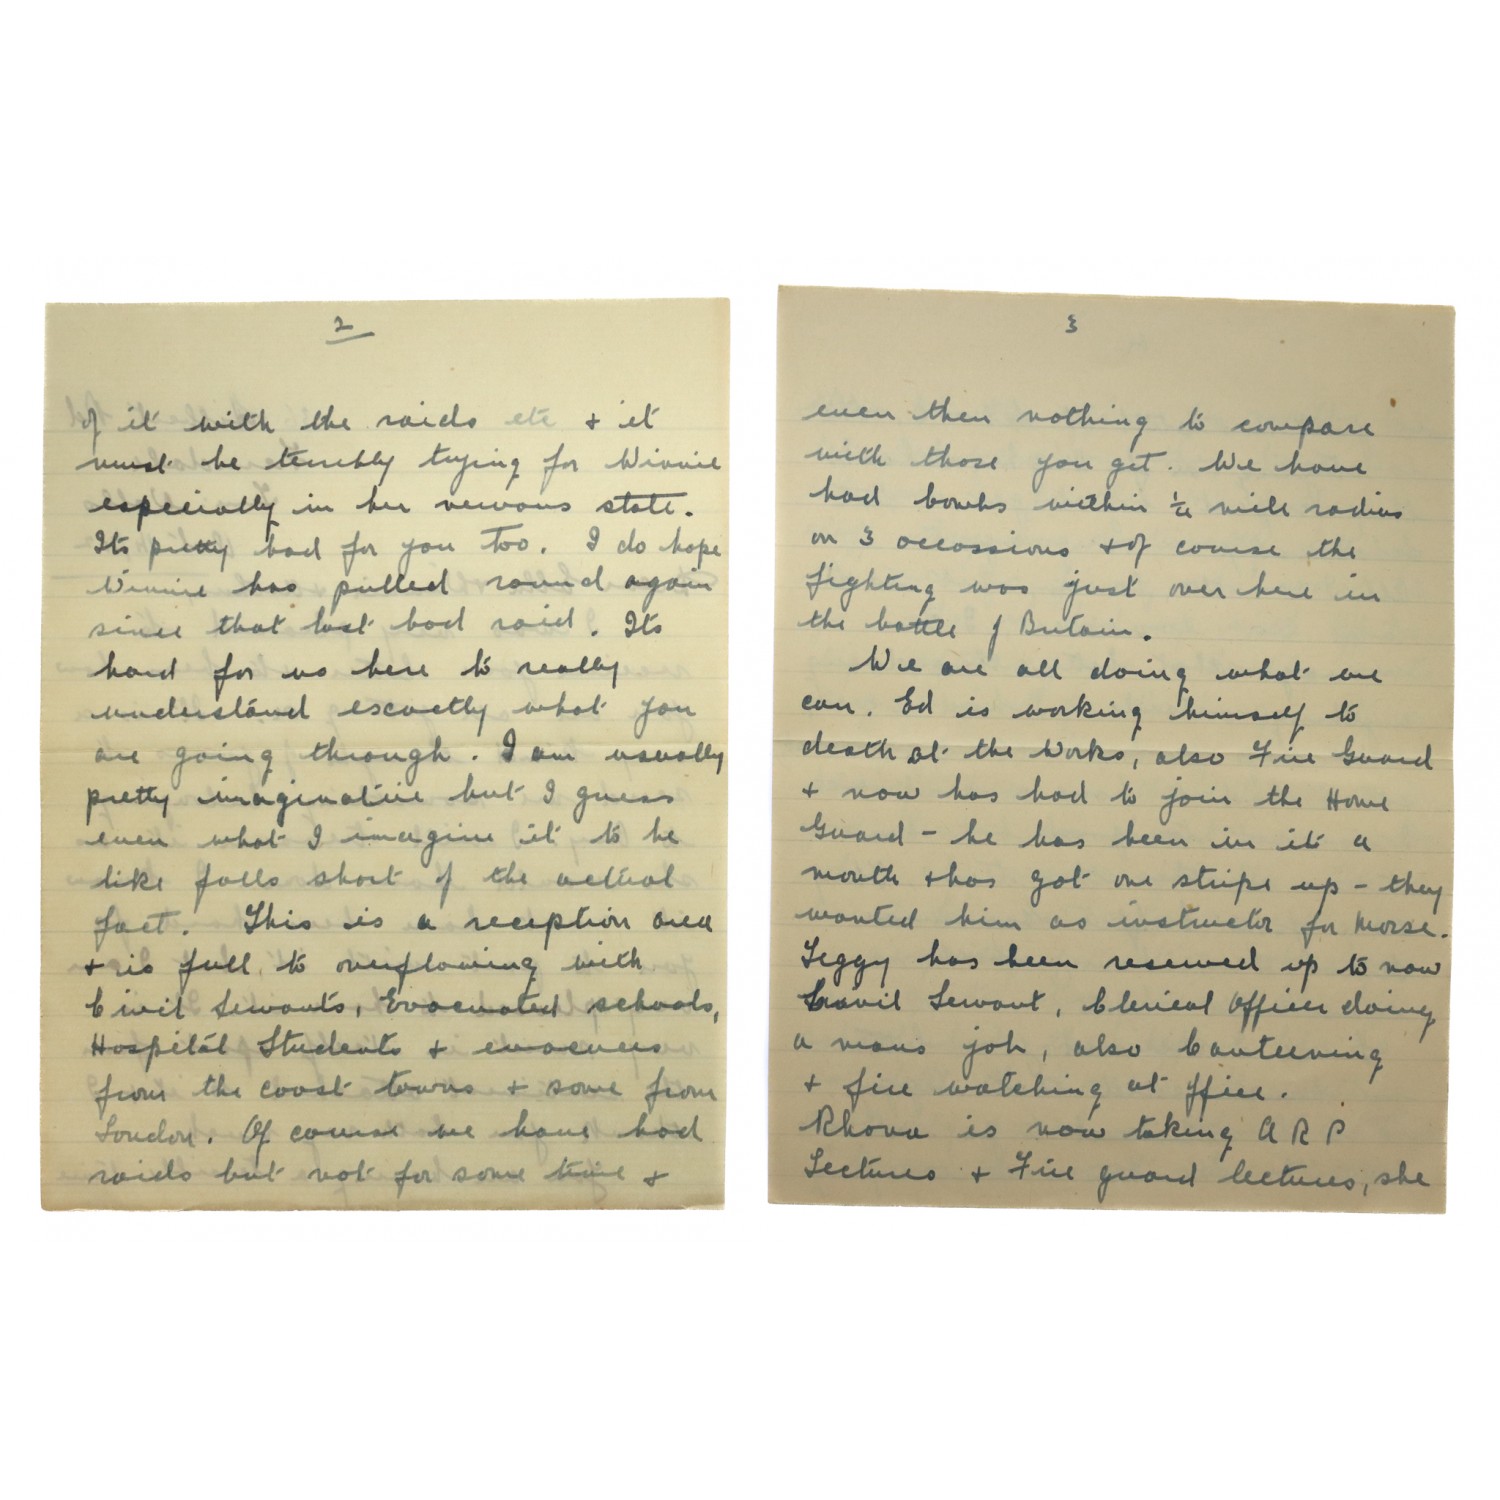 2
of it with the raids etc & it
must be terribly trying for Winnie
especially in her nervous state.
Its pretty bad for you too. I do hope
Winnie has pulled round again
since that last bad raid. Its
hard for us here to really
understand excactly what you
are going through. I am usually
pretty imaginative but I guess
even what I imagine it to be
like falls short of the actual
fact. This is a reception area
& is full to overflowing with
Civil Servants, Evacuated schools,
Hospital Students & evacuees
from the coast towns & some from
London. Of course we have had
raids but not for some time &
3
even then nothing to compare
with those you get. We have
had bombs within 1/4 mile radius
on 3 occassions & of course the
fighting was just over here in
the battle of Britain.
We are all doing what we
can. Ed is working himself to
death at the Works, also Fire Guard
& now has had to join the Home
Guard - he has been in it a
month & has got one stripe up - they
wanted him as instructor for Morse.
Peggy has been reserved up to now
Servant, Clerical Officer doing
a mans job, also Canteening
& fire watching at office.
Rhona is now taking A R P
Lectures & Fire guard lectures, she